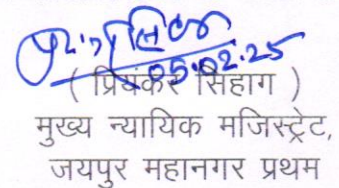 05.02.25
( प्रियंकर सिहाग )
मुख्य न्यायिक मजिस्ट्रेट,
जयपुर महानगर प्रथम